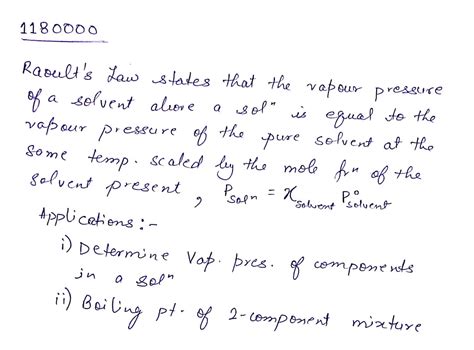 1180000
Raoult's Law states that the vapour pressure
of a solvent above a solⁿ is equal to the
vapour pressure of the pure solvent at the
same temp. scaled by the mole frn of the
solvent present, P_solⁿ = χ_solvent P°_solvent
Applications :-
i) Determine Vap. pres. of components
in a solⁿ
ii) Boiling pt. of 2-component mixture